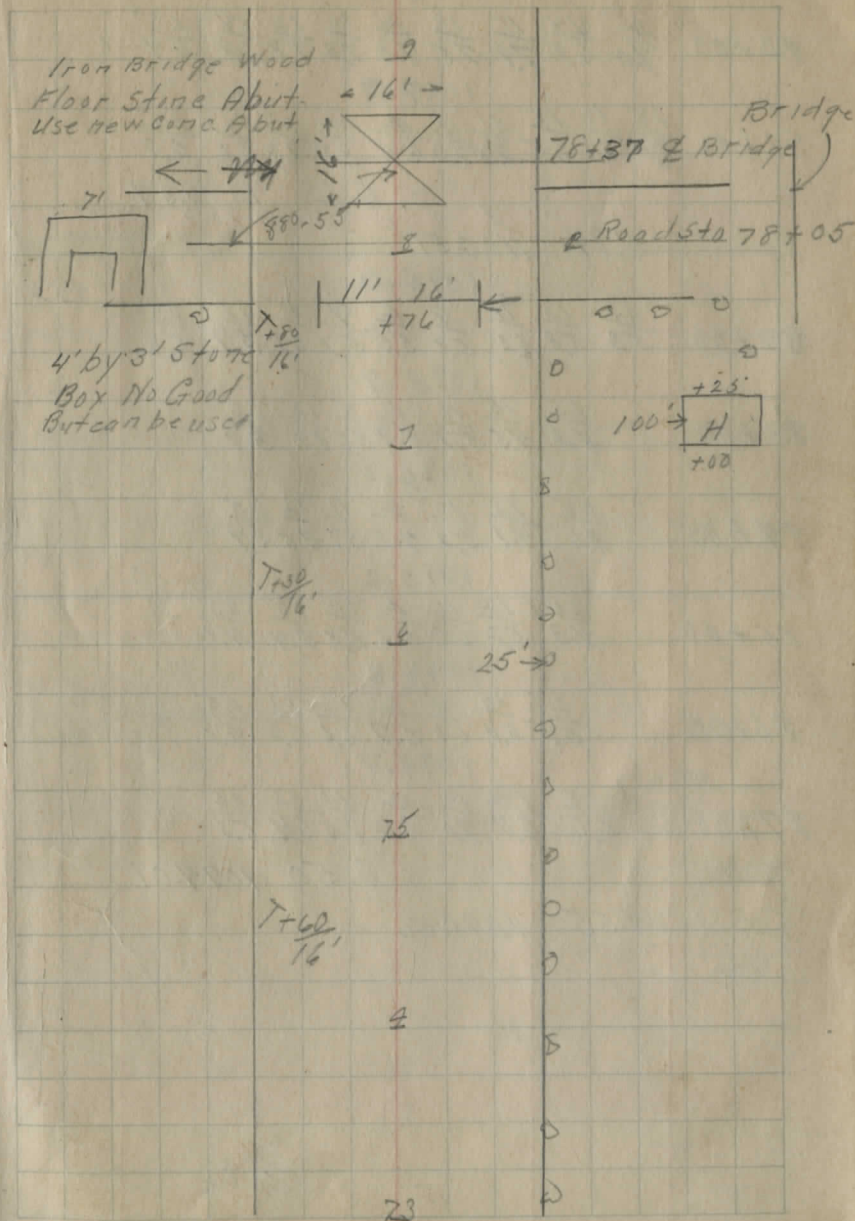 9
Iron Bridge Wood
Floor Stine Abut.
Use new conc Abut
16'
16'
Bridge
78+37 ℄ Bridge
7'
88°-55'
8
℄ Road Sta 78+05
11' 16'
+76
T+80
16'
4' by 3' Stone
Box No Good
But can be used
+25
100' → H
+00
7
T+30
16'
6
25' →
75
T+60
16'
4
73